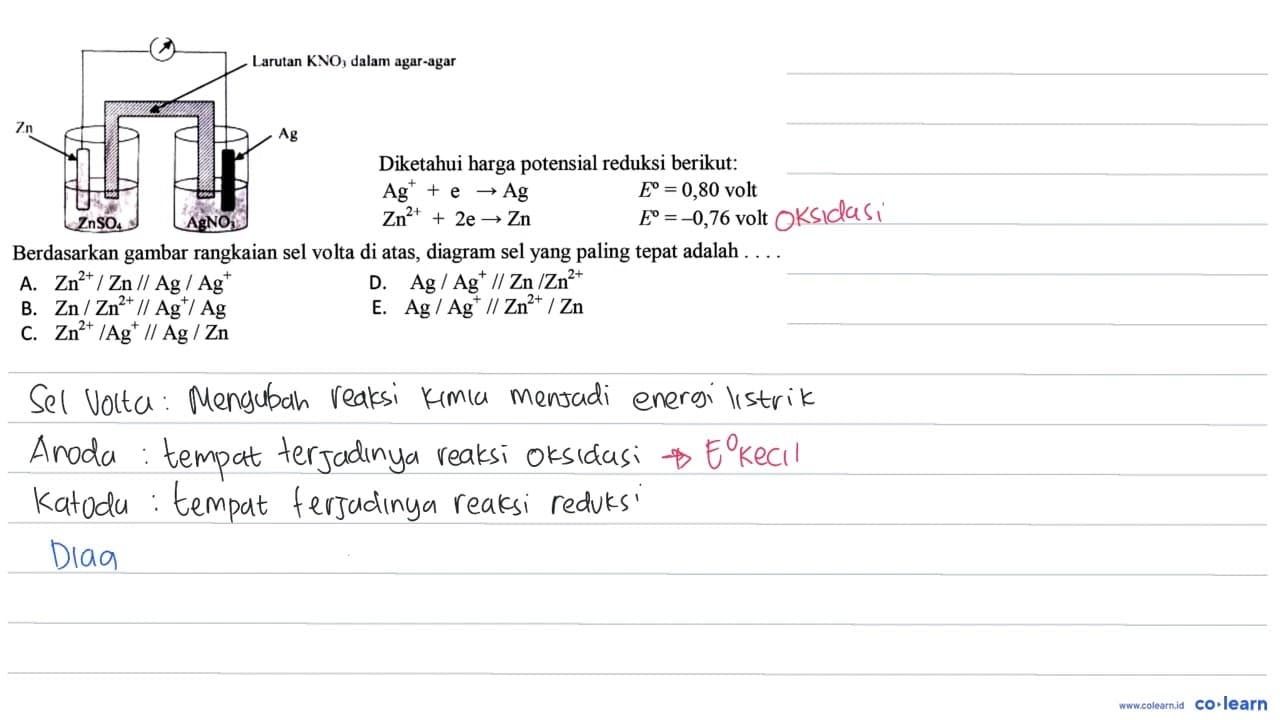 Larutan KNO₃ dalam agar-agar
Zn
Ag
ZnSO₄
AgNO₃
Diketahui harga potensial reduksi berikut:
Ag⁺ + e → Ag E° = 0,80 volt
Zn²⁺ + 2e → Zn E° = –0,76 volt Oksidasi
Berdasarkan gambar rangkaian sel volta di atas, diagram sel yang paling tepat adalah . . . .
A. Zn²⁺ / Zn // Ag / Ag⁺ D. Ag / Ag⁺ // Zn /Zn²⁺
B. Zn / Zn²⁺ // Ag⁺/ Ag E. Ag / Ag⁺ // Zn²⁺ / Zn
C. Zn²⁺ /Ag⁺ // Ag / Zn
Sel Volta : Mengubah reaksi kimia menjadi energi listrik
Anoda : tempat terjadinya reaksi oksidasi → E° kecil
Katoda : tempat terjadinya reaksi reduksi
Diag
www.colearn.id co·learn